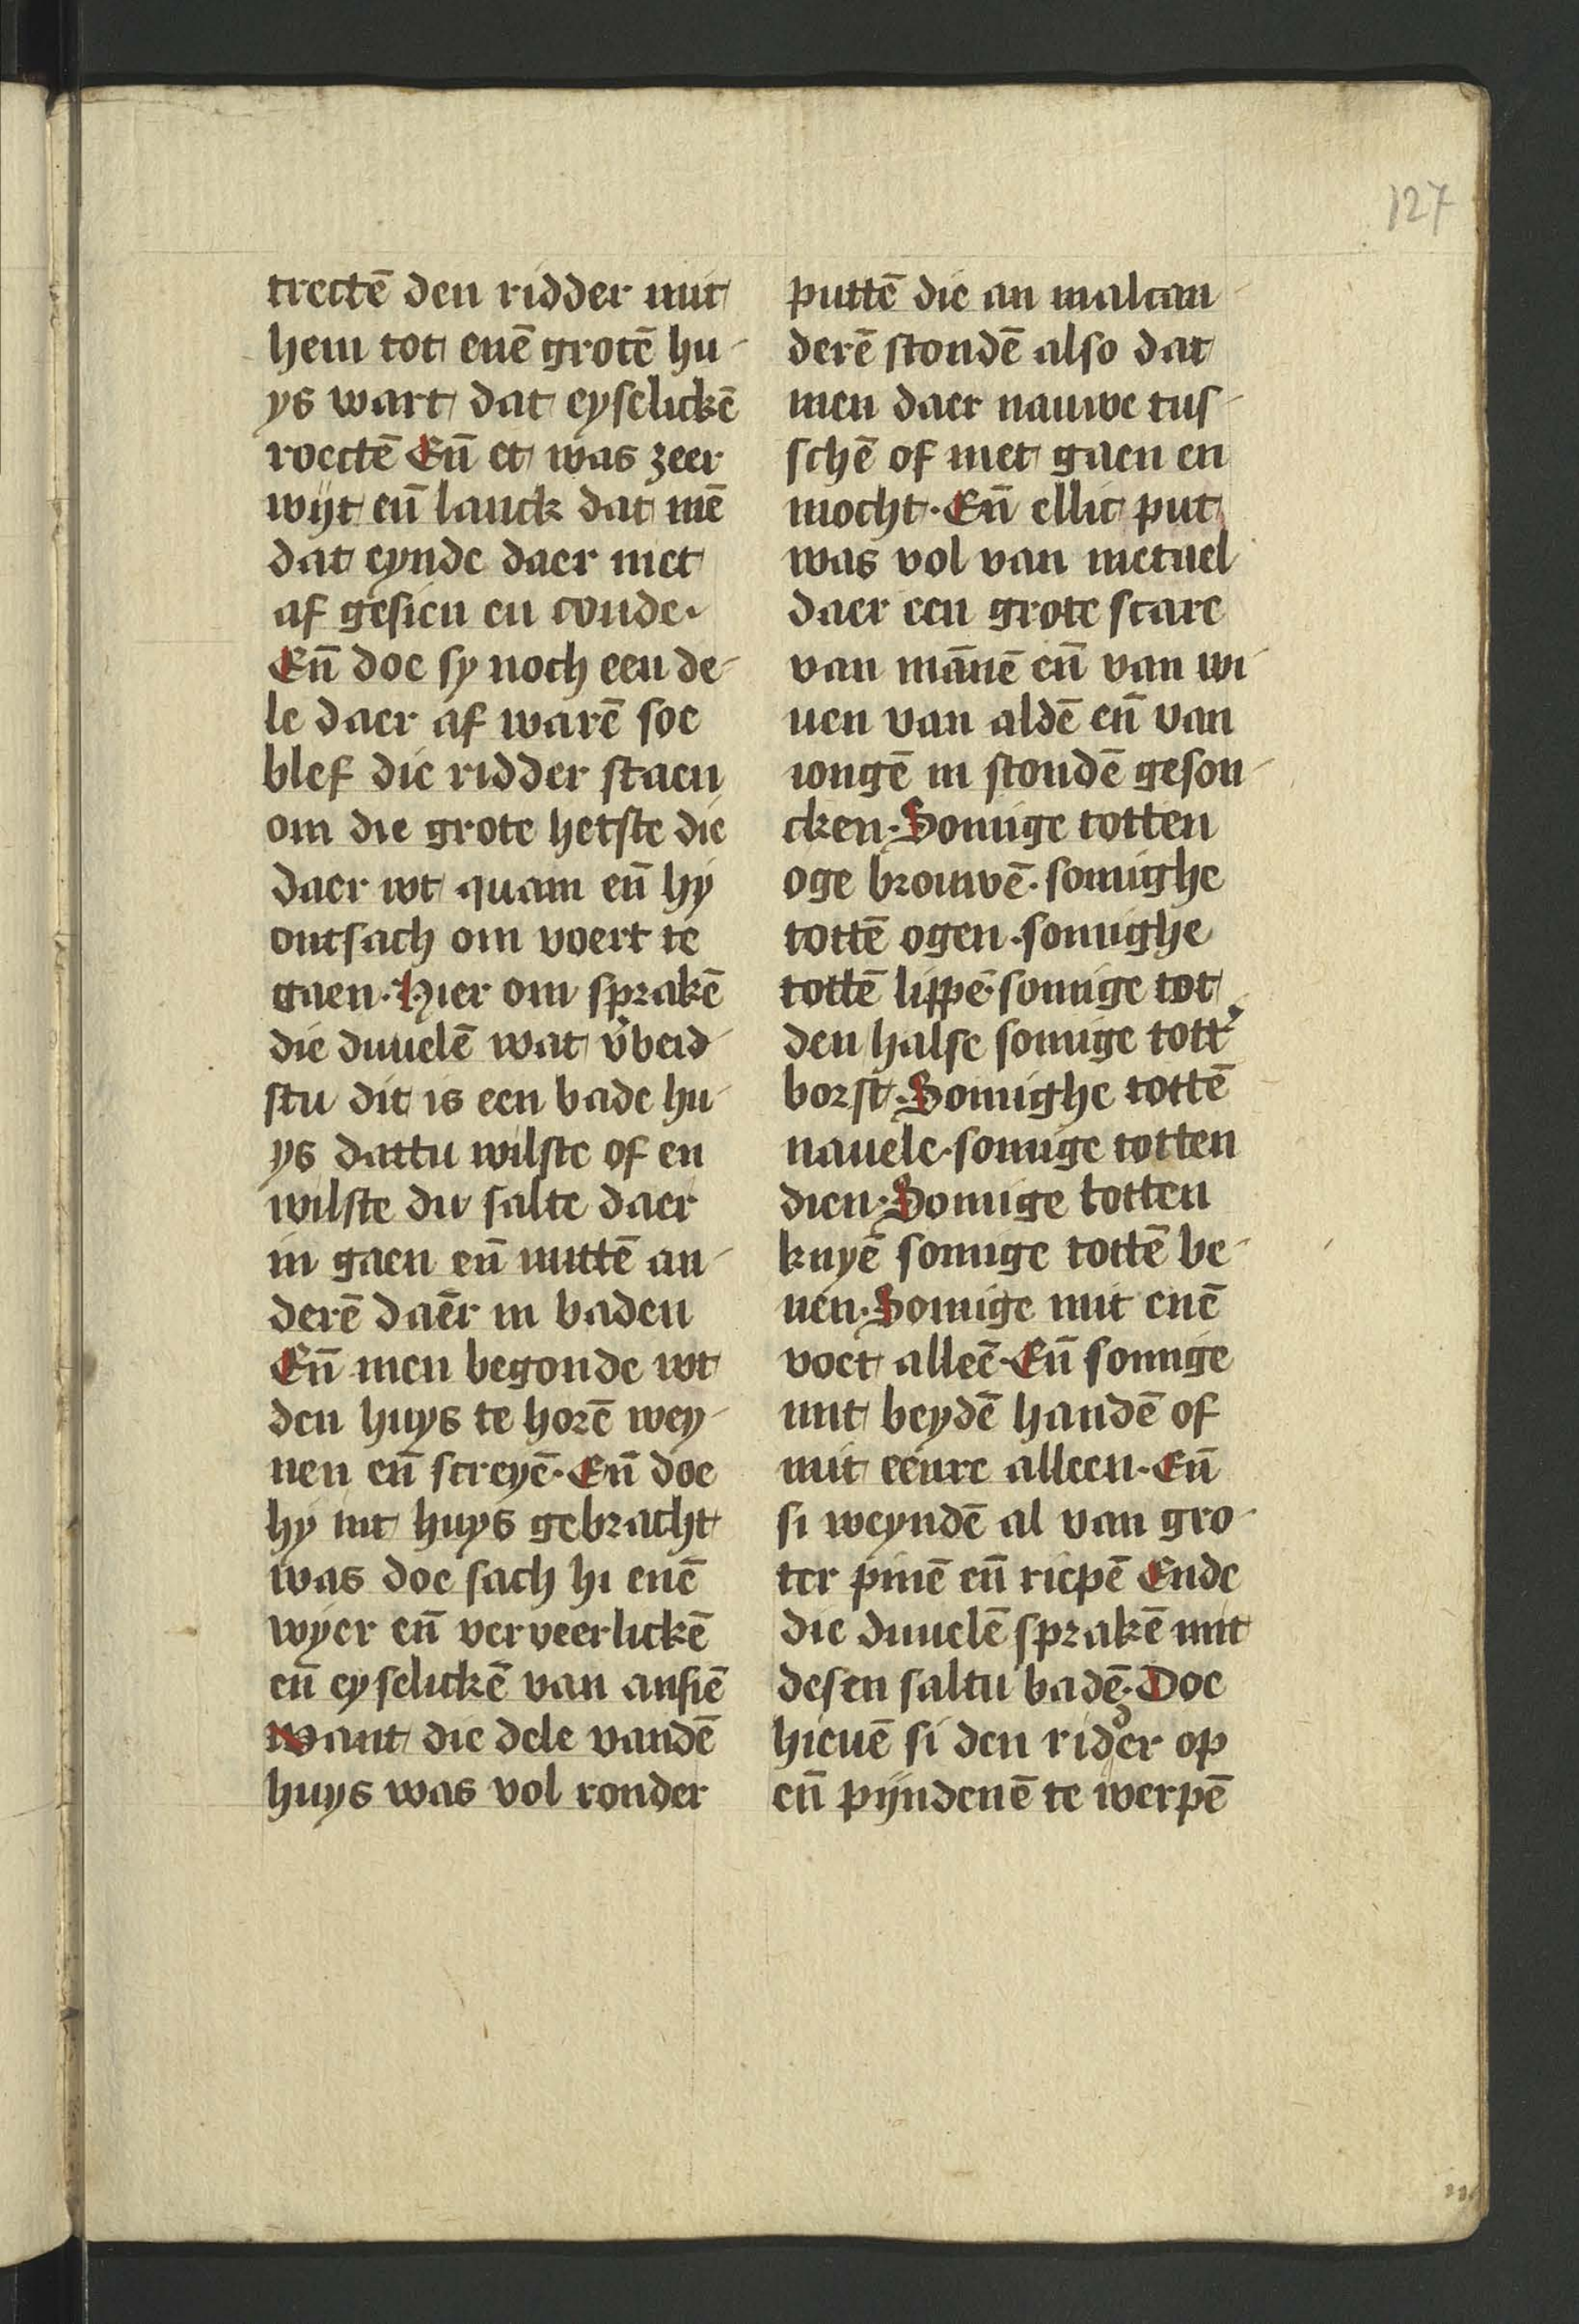 127
trectē den ridder mit
hem tot enē grotē hu-
ys wart dat eyselickē
roectē Eñ et was zeer
wijt eñ lanck dat mē
dat eynde daer niet
af gesien en conde.
Eñ doe sy noch een de-
le daer af warē soe
blef die ridder staen
om die grote hetste die
daer wt quam eñ hy
ontsach om voert te
gaen. Hier om sprakē
die duuelē wat v̓beid-
stu dit is een bade hu-
ys dattu wilste of en
wilste du salte daer
in gaen eñ mittē an-
derē daēr in baden
Eñ men begonde wt
den huys te horē wey-
nen eñ screyē. Eñ doe
hy int huys gebracht
was doe sach hi enē
wyer eñ verveerlickē
eñ eyselickē van ansiē
want die dele vandē
huys was vol ronder
puttē die an malcan-
derē stondē also dat
men daer nauwe tus-
schē of niet gaen en
mocht. Eñ ellic put
was vol van metael
daer een grote scare
van mānē eñ van wi-
uen van aldē eñ van
iongē in stondē geson-
cken. Somige totten
oge brouwē. somighe
tottē ogen. somighe
tottē lippē. somige tot
den halse somige tott̓
borst. Somighe tottē
nauele. somige totten
dien. Somige totten
knyē somige tottē be-
nen. Somige mit enē
voet alleē. Eñ somige
mit beydē handē of
mit eenre alleen. Eñ
si weyndē al van gro-
ter pinē eñ riepē Ende
die duuelē sprakē mit
desen saltu badē. Doe
hieuē si den ridder op
eñ pijndenē te werpē